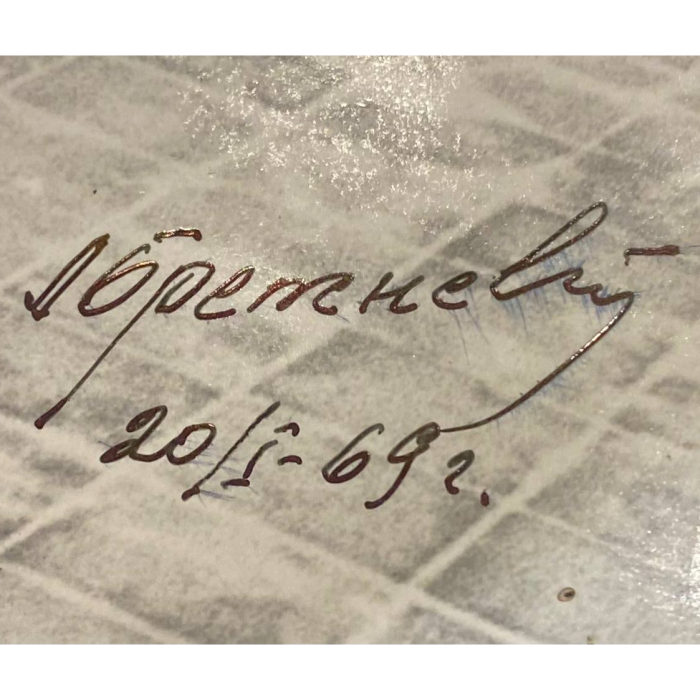 Л Брежнев
20/I-69 г.